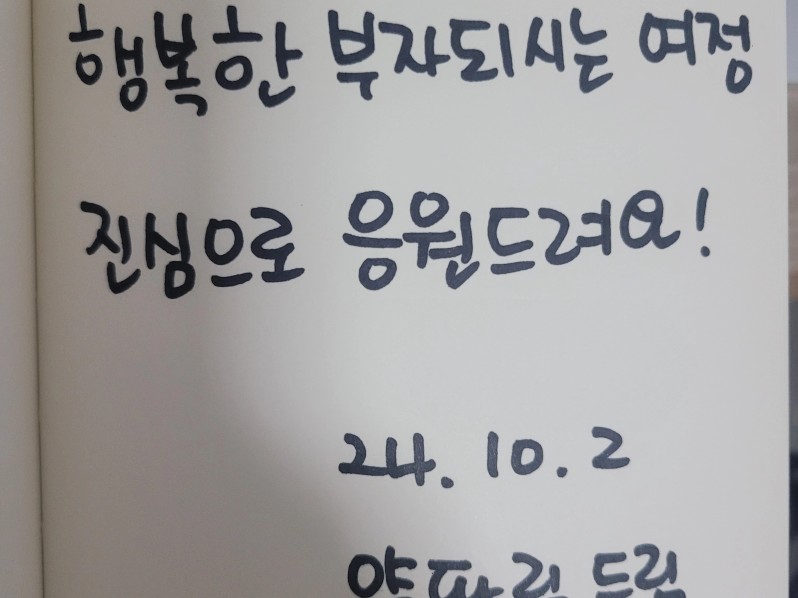 행복한 부자되시는 여정
진심으로 응원드려요!
24.10.2
드림